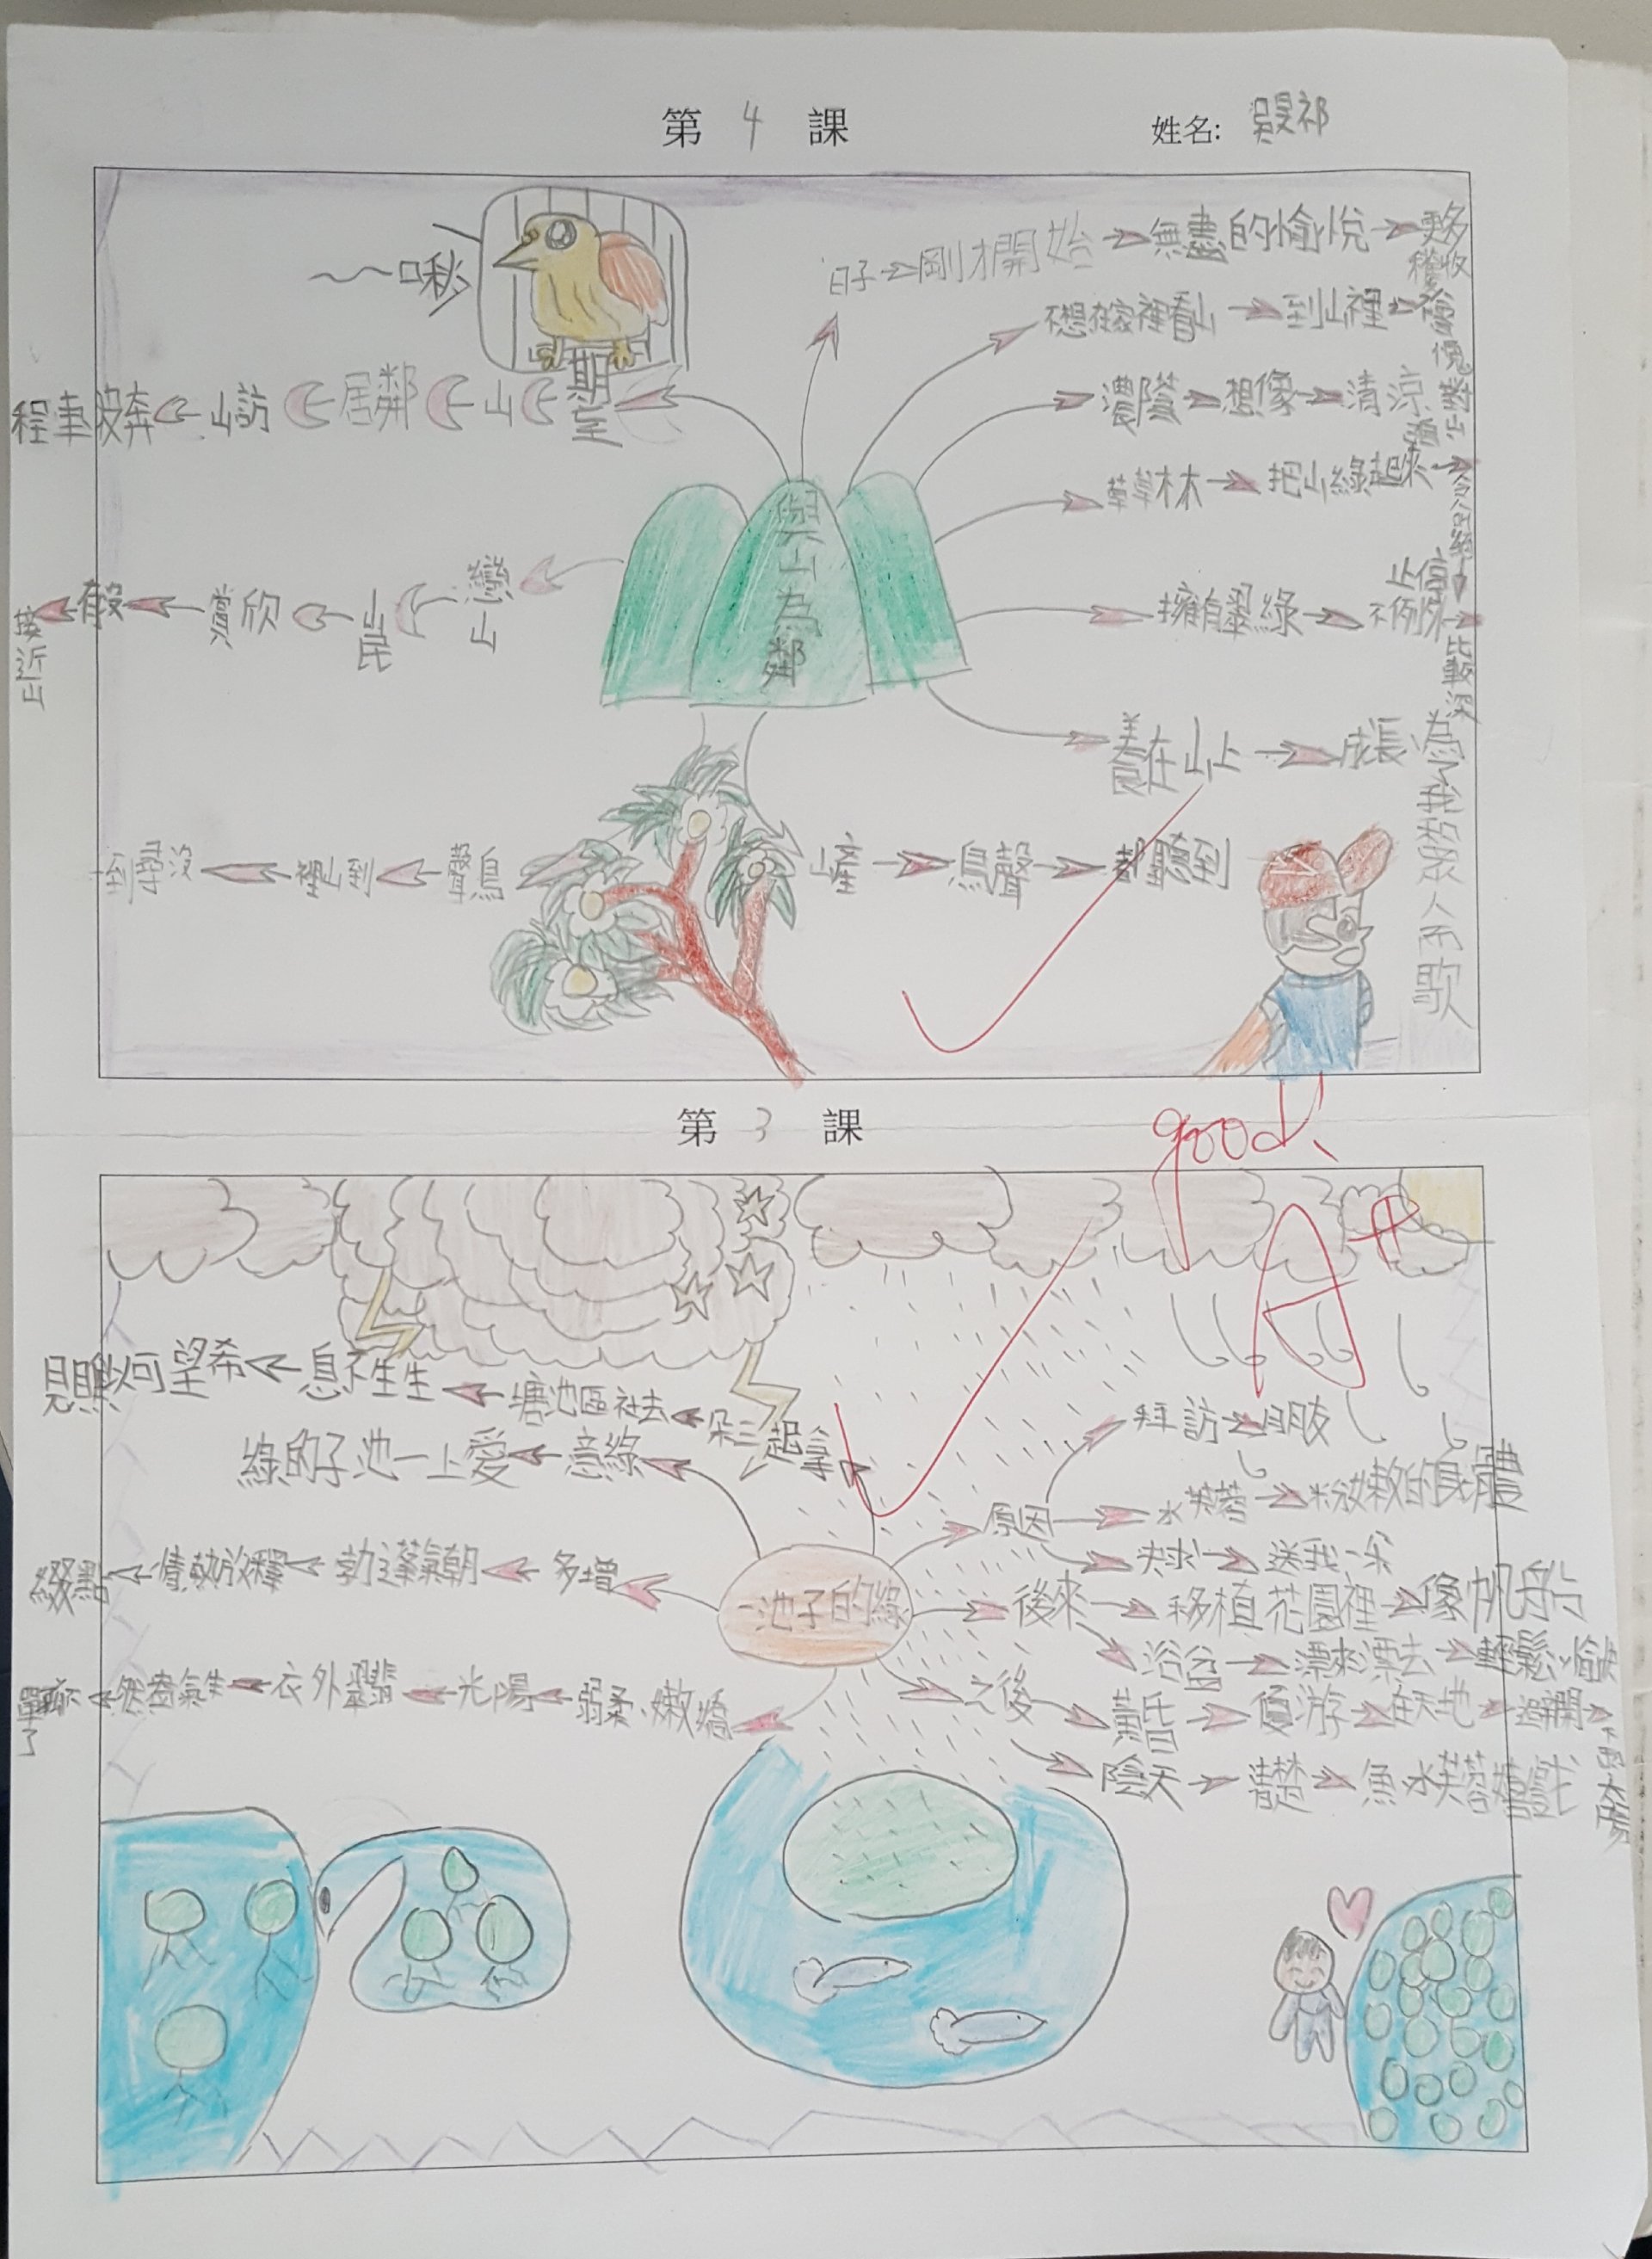 第 4 課
姓名:
啾
日子 剛才開始 無盡的愉悅 更多
不想在家裡看山 到山裡
濃蔭 想像 清涼
程車 奔 山訪 居鄰 山 期室
草林木 把山綠起來
與山為鄰
擁有翠綠 不例外
比較深
戀山 山民 賞欣
接近山
養在山上 成長
為了我 眾人而歌
到尋沒 裡山到 聲鳥
鳥聲 都聽到
第 3 課
good!
A+
見 以可望希 息不生生 塘池區社去 朵三起拿
綠的子池一上愛 意綠
拜訪 朋友
原因 水芙蓉 粉嫩的身體
央求 送我一朵
綴點 情熱放釋 勃蓬氣朝 多增
一池子的綠
後來 移植花園裡 像帆船
浴盆 漂來漂去 輕鬆、愉快
單了 然盎氣生 衣外翠翡 光陽 弱柔、嫩嬌
之後 黃昏 優游 在天地
陰天 清楚 魚 水芙蓉嬉戲